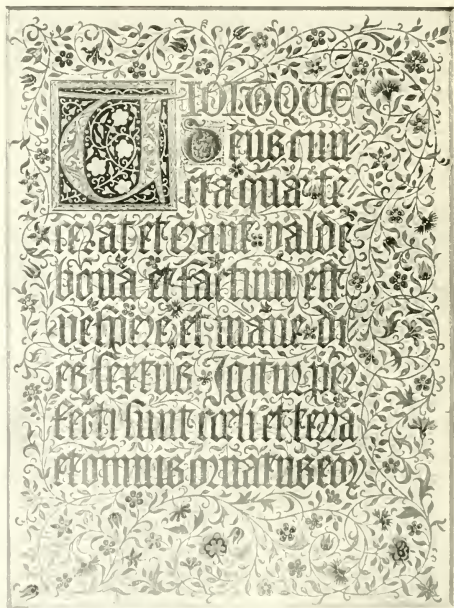 VIDITQUE
Deus cun
cta quæ fe
cerat et erant valde
bona et factum est
vespere et mane di
es sextus Igitur per
fecti sunt cœli et terra
et omnis ornatus eoꝝ